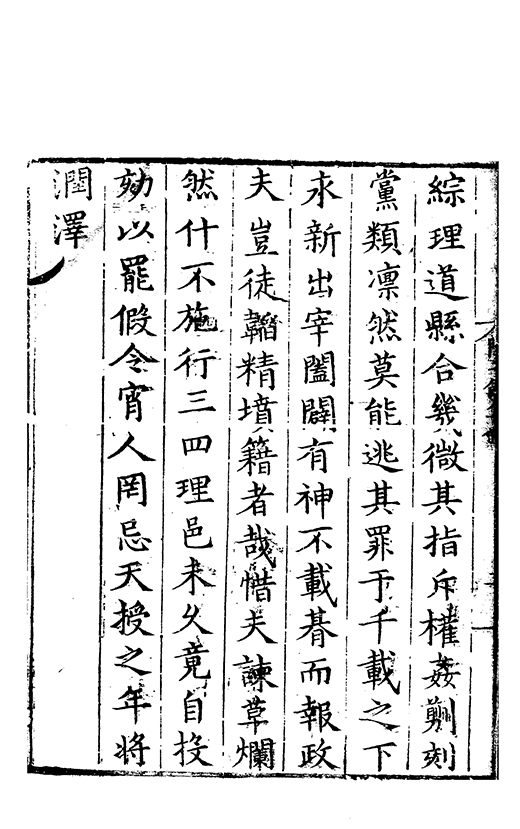 綜理道縣合幾微其指斥權姦剸刻
黨類凛然莫能逃其罪于千載之下
永新出宰闔闢有神不載朞而報政
夫豈徒韜精墳籍者哉惜夫諫草爛
然什不施行三四理邑未久竟自投
劾以罷假令宵人罔忌天授之年將
潤澤